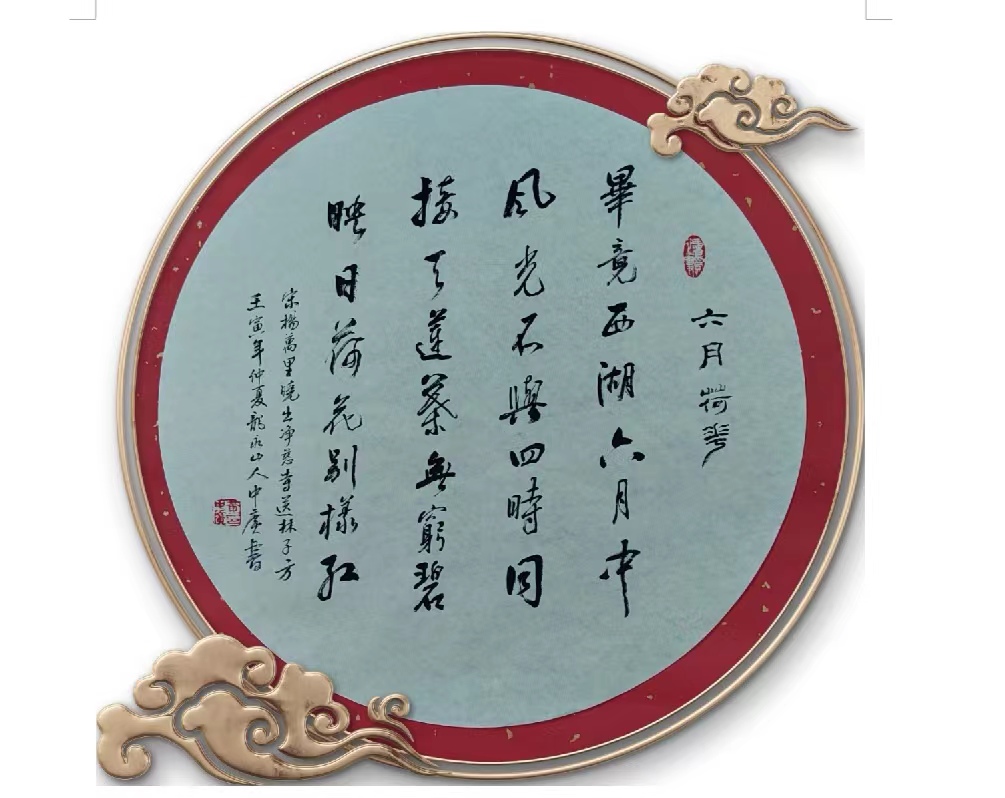 六月荷花
畢竟西湖六月中
風光不與四時同
接天蓮葉無窮碧
映日荷花別樣紅
宋楊萬里曉出净慈寺送林子方
壬寅年仲夏龍爪山人中廣書